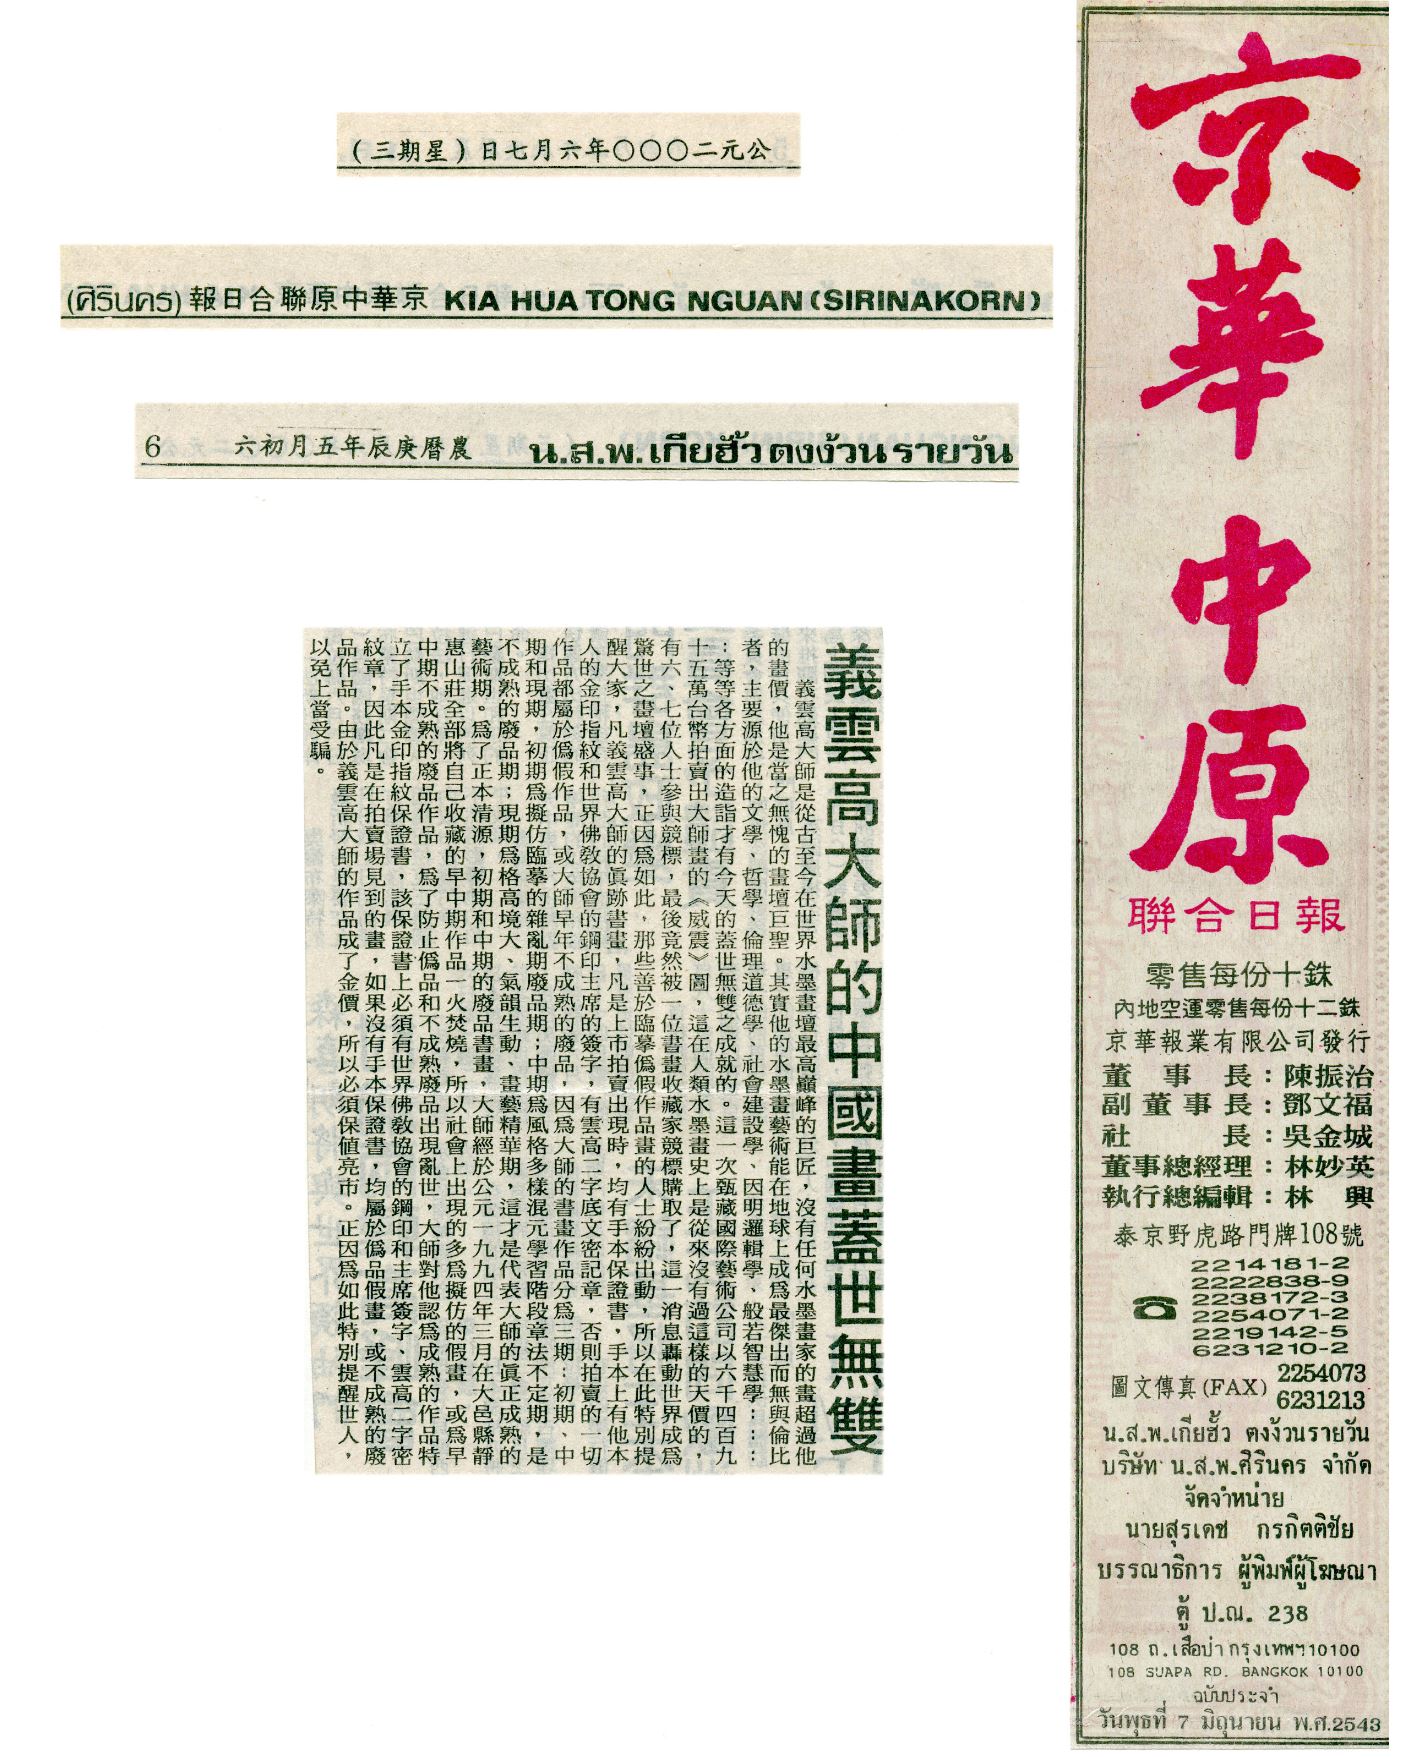 公元二○○○年六月七日（星期三）
(ศิรินคร) 京華中原聯合日報 KIA HUA TONG NGUAN (SIRINAKORN)
6 農曆庚辰年五月初六 น.ส.พ.เกียฮั้วตงง้วนรายวัน
義雲高大師的中國畫蓋世無雙
義雲高大師是從古至今在世界水墨畫壇最高巔峰的巨匠，沒有任何水墨畫家的畫超過他
的畫價，他是當之無愧的畫壇巨聖。其實他的水墨畫藝術能在地球上成爲最傑出而無與倫比
者，主要源於他的文學、哲學、倫理道德學、社會建設學、因明邏輯學、般若智慧學：：：
：等等各方面的造詣才有今天的蓋世無雙之成就的。這一次甄藏國際藝術公司以六千四百九
十五萬台幣拍賣出大師畫的《威震》圖，這在人類水墨畫史上是從來沒有過這樣的天價的，
有六、七位人士參與競標，最後竟然被一位書畫收藏家競標購取了，這一消息轟動世界成爲
驚世之畫壇盛事，正因爲如此，那些善於臨摹僞假作品畫的人士紛紛出動，所以在此特別提
醒大家，凡義雲高大師的眞跡書畫，凡是上市拍賣出現時，均有手本保證書，手本上有他本
人的金印指紋和世界佛教協會的鋼印主席的簽字，有雲高二字底文密記章，否則拍賣的一切
作品都屬於僞假作品，或大師早年不成熟的廢品，因爲大師的書畫作品分爲三期：初期、中
期和現期，初期爲擬仿臨摹的雜亂期廢品期；中期爲風格多樣混元學習階段章法不定期，是
不成熟的廢品期；現期爲格高境大、氣韻生動、畫藝精華期，這才是代表大師的眞正成熟的
藝術期。爲了正本清源，初期和中期的廢品書畫，大師經於公元一九九四年三月在大邑縣靜
惠山莊全部將自己收藏的早中期作品一火焚燒，所以社會上出現的多爲擬仿的假畫，或爲早
中期不成熟的廢品作品，爲了防止僞品和不成熟廢品出現亂世，大師對他認爲成熟的作品特
立了手本金印指紋保證書，該保證書上必須有世界佛教協會的鋼印和主席簽字、雲高二字密
紋章，因此凡是在拍賣場見到的畫，如果沒有手本保證書，均屬於僞品假畫，或不成熟的廢
品作品。由於義雲高大師的作品成了金價，所以必須保値亮市。正因爲如此特別提醒世人，
以免上當受騙。
京華中原
聯合日報
零售每份十銖
內地空運零售每份十二銖
京華報業有限公司發行
董事長：陳振治
副董事長：鄧文福
社長：吳金城
董事總經理：林妙英
執行總編輯：林興
泰京野虎路門牌108號
☎ 2214181-2
2222838-9
2238172-3
2254071-2
2219142-5
6231210-2
圖文傳真(FAX) 2254073
6231213
น.ส.พ.เกียฮั้ว ตงง้วนรายวัน
บริษัท น.ส.พ.ศิรินคร จำกัด
จัดจำหน่าย
นายสุรเดช กรกิตติชัย
บรรณาธิการ ผู้พิมพ์ผู้โฆษณา
ตู้ ป.ณ. 238
108 ถ.เสือป่า กรุงเทพฯ10100
108 SUAPA RD. BANGKOK 10100
ฉบับประจำ
วันพุธที่ 7 มิถุนายน พ.ศ.2543